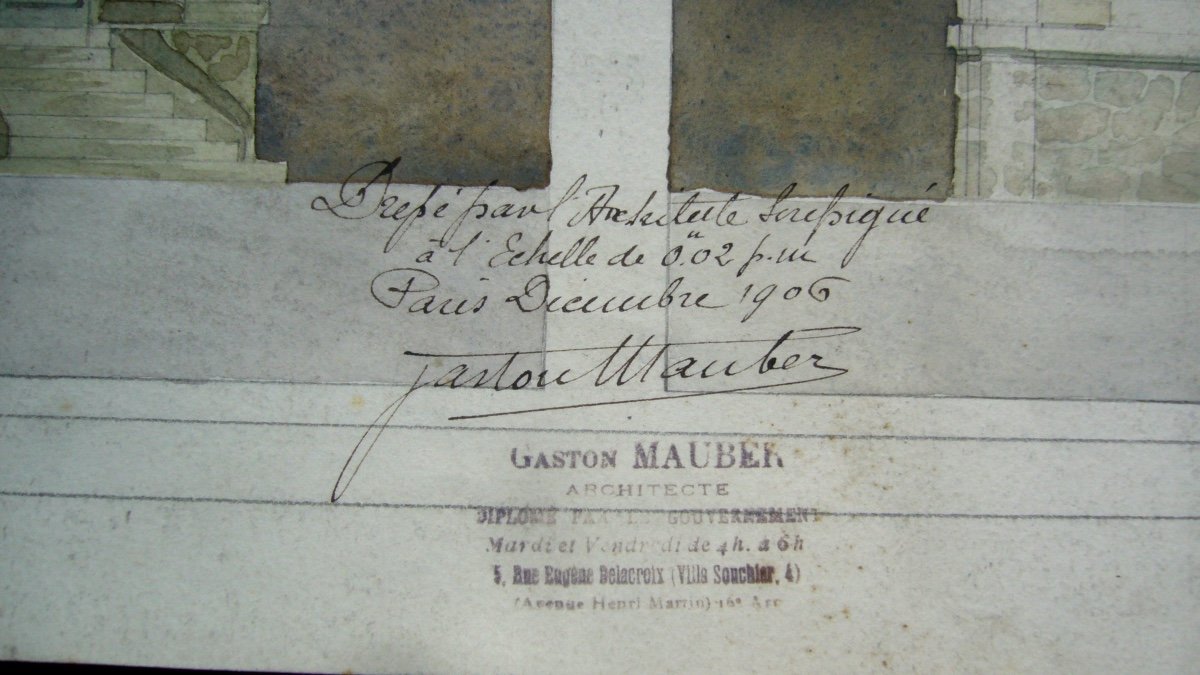 Dressé par l'Architecte soussigné
à l'Echelle de 0.m02 p.m
Paris Décembre 1906
Gaston Mauber
GASTON MAUBER
ARCHITECTE
DIPLOMÉ PAR LE GOUVERNEMENT
Mardi et Vendredi de 4h. à 6h
5, Rue Eugène Delacroix (Villa Souchier, 4)
(Avenue Henri Martin) 16e Arr